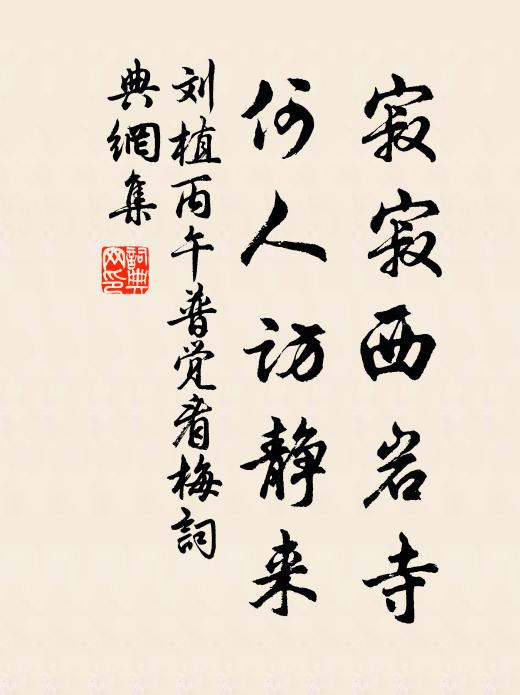 寂寂西岩寺
何人访静来
刘植丙午普觉看梅词
典網集
詞典
网印